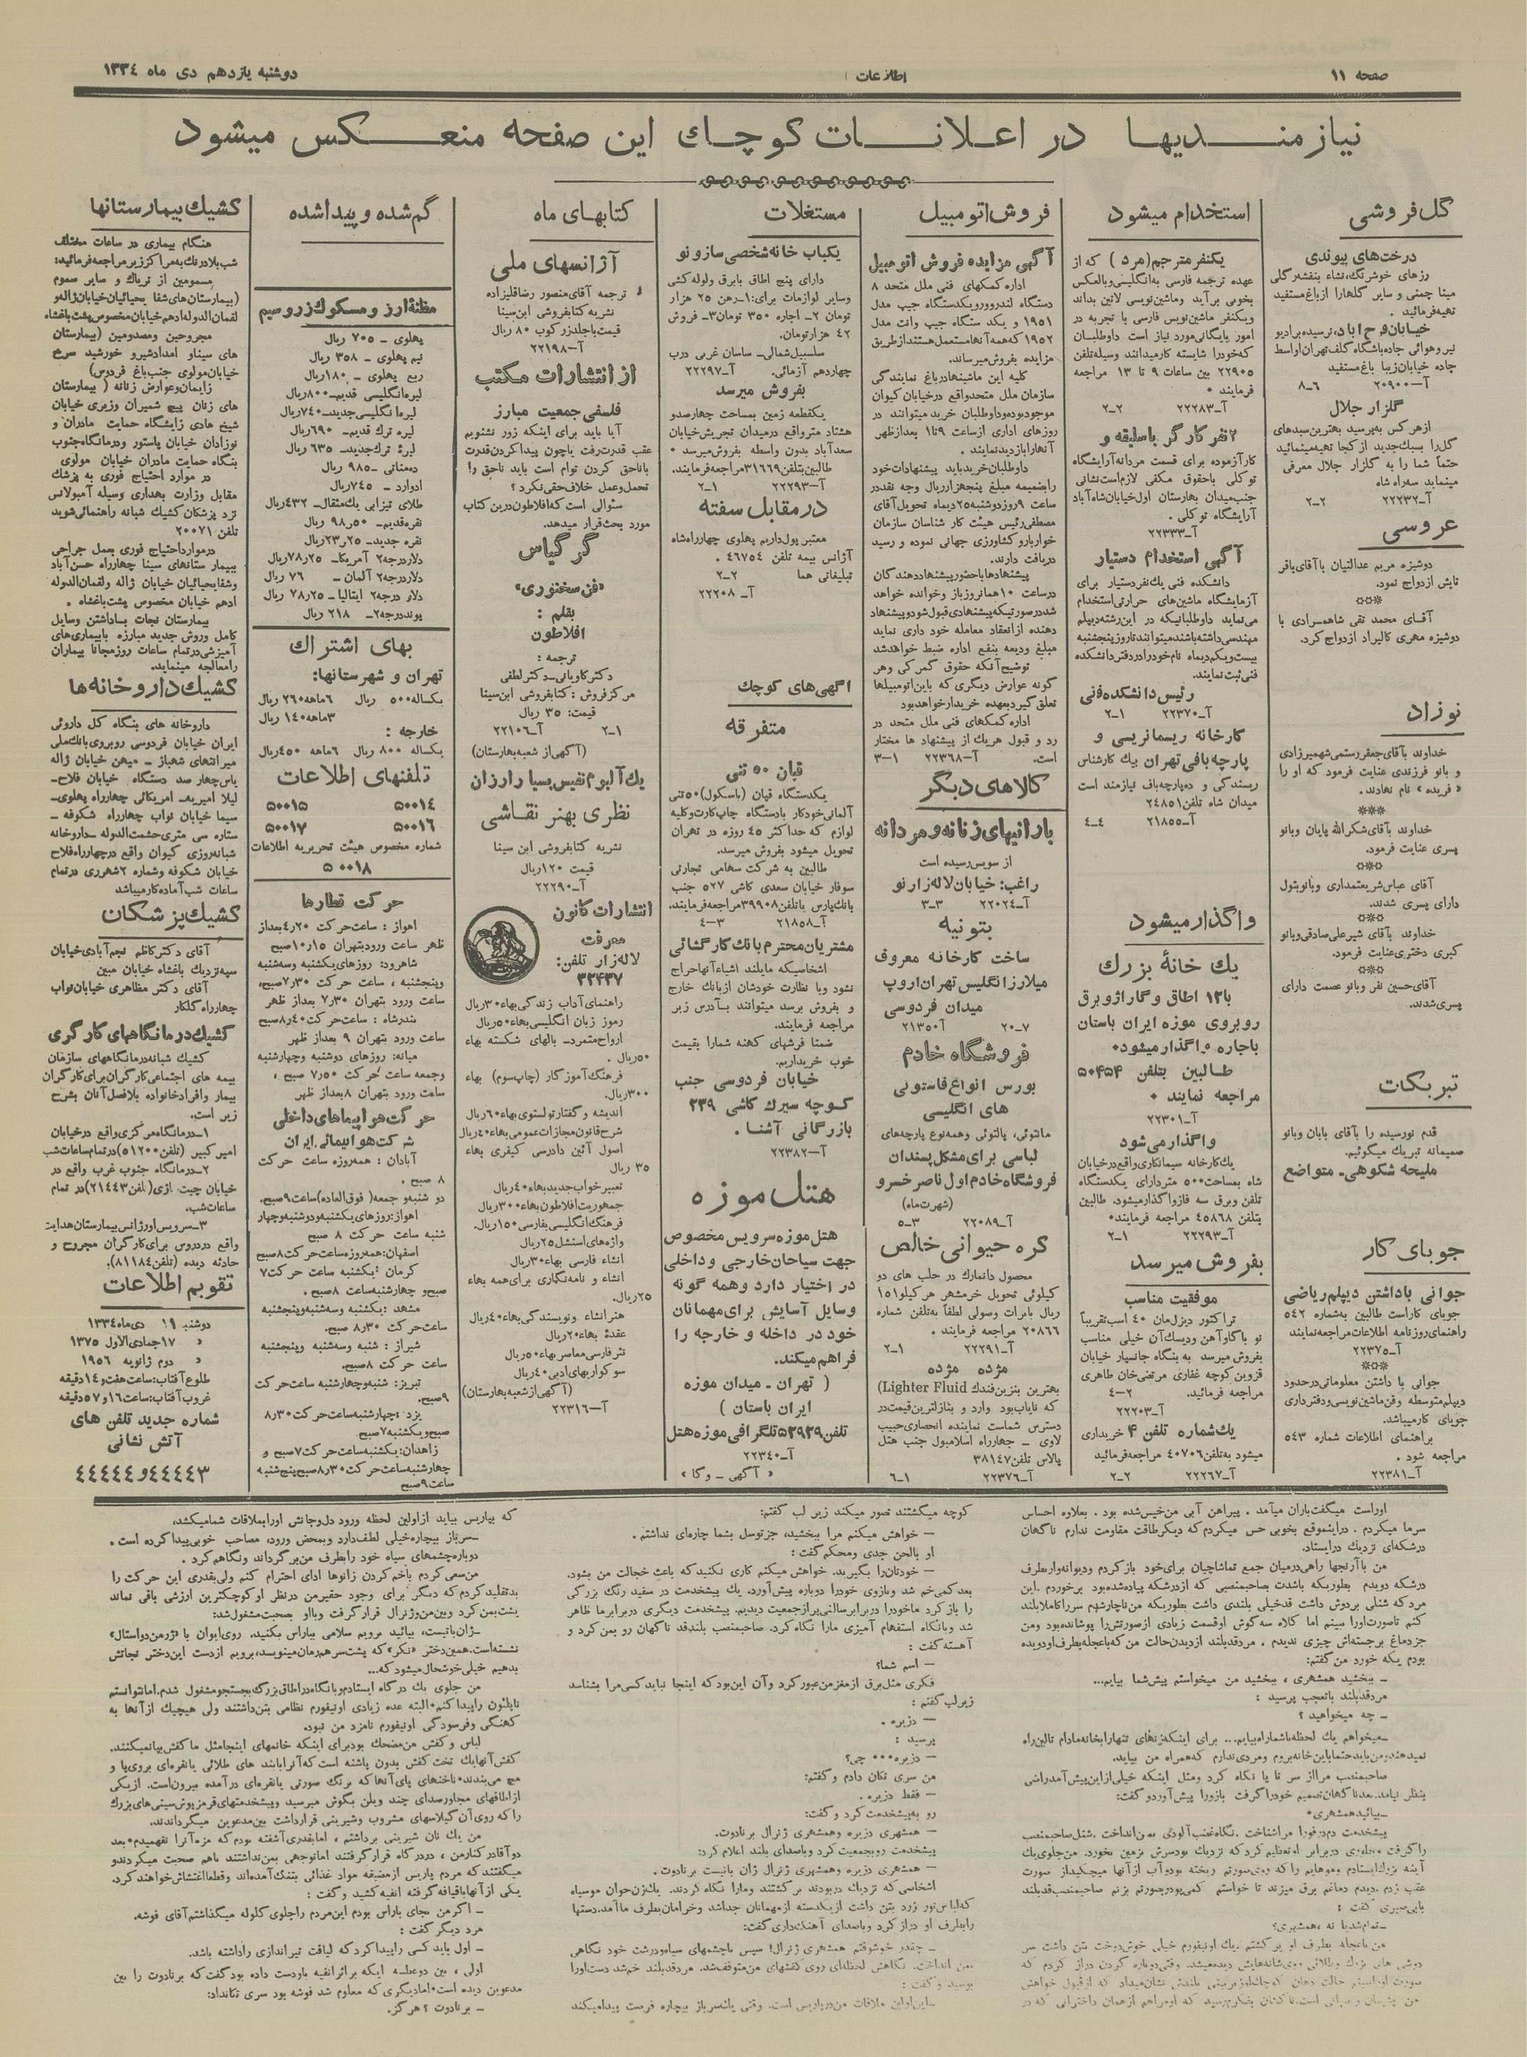 صفحه ۱۱
اطلاعات
دوشنبه یازدهم دی ماه ۱۳۳۴
نیازمندیها در اعلانات کوچک این صفحه منعکس میشود
گل فروشی
درخت‌های پیوندی
رزهای خوشرنگ، نشاء بنفشه، گلی
مینا چمنی و سایر گلها را از باغ مستفید
تهیه فرمائید.
خیابان فرح آباد، نرسیده برادیو
تیر و هوائی جاده باشگاه کلف تهران اواسط
جاده خیابان زیبا باغ مستفید
آ-۲۰۹۰۰ ۶-۸
گلزار جلال
از هر کس به پرسید بهترین سبدهای
گل را بسبک جدید از کجا تهیه مینمائید
حتماً شما را به گلزار جلال معرفی
مینماید سه راه شاه
آ-۲۲۲۳۲ ۲-۲
عروسی
دوشیزه مریم عدالتیان با آقای باقر
تابش ازدواج نمود.
آقای محمد تقی شاهمرادی با
دوشیزه مهری کالیراد ازدواج کرد.
نوزاد
خداوند بآقای جعفر رستمی شهمیرزادی
و بانو فرزندی عنایت فرمود که او را
«فریده» نام نهادند.
خداوند بآقای شکرالله پایان و بانو
پسری عنایت فرمود.
آقای عباس شریعتمداری و بانو بتول
دارای پسری شدند.
خداوند بآقای شیرعلی صادقی و بانو
کبری دختری عنایت فرمود.
آقای حسین نفر و بانو عصمت دارای
پسری شدند.
تبریکات
قدم نورسیده را بآقای بابان و بانو
صمیمانه تبریک میگوئیم.
ملیحه شکوهی - متواضع
جویای کار
جوانی با داشتن دیپلم ریاضی
جویای کار است طالبین به شماره ۵۴۲
راهنمای روزنامه اطلاعات مراجعه نمایند
آ-۲۲۳۷۵
جوانی با داشتن معلوماتی در حدود
دیپلم متوسطه و فن ماشین نویسی و دفترداری
جویای کار میباشد.
براهنمای اطلاعات شماره ۵۴۳
مراجعه شود.
آ-۲۲۳۸۱
استخدام میشود
یکنفر مترجم (مرد) که از
عهده ترجمه فارسی به انگلیسی و بالعکس
بخوبی برآید و ماشین نویسی لاتین بداند
و یکنفر ماشین نویس فارسی با تجربه در
امور بایگانی مورد نیاز است داوطلبان
که خود را شایسته کار میدانند وسیله تلفن
۲۲۹۰۵ بین ساعات ۹ تا ۱۳ مراجعه
فرمایند.
آ-۲۲۲۸۳ ۲-۲
۲ نفر کارگر با سلیقه و
کارآزموده برای قسمت مردانه آرایشگاه
توکلی با حقوق مکفی لازم است نشانی
جنب میدان بهارستان اول خیابان شاه آباد
آرایشگاه توکلی.
آ-۲۲۳۳۳
آگهی استخدام دستیار
دانشکده فنی یک نفر دستیار برای
آزمایشگاه ماشین‌های حرارتی استخدام
می نماید داوطلبانیکه در این رشته دیپلم
مهندسی داشته باشند میتوانند تا روز پنجشنبه
بیست و یکم دیماه نام خود را در دفتر دانشکده
فنی ثبت نمایند.
رئیس دانشکده فنی
آ-۲۲۳۷۰ ۱-۲
کارخانه ریسمانریسی و
پارچه بافی تهران بیک کارشناس
ریسندگی و ده پارچه باف نیازمند است
میدان شاه تلفن ۲۴۸۵۱
آ-۲۱۸۵۵ ۴-۴
واگذار میشود
یک خانهٔ بزرک
با ۱۲ اطاق و گاراژ و برق
روبروی موزه ایران باستان
با جاره واگذار میشود
طالبین بتلفن ۵۰۴۵۴
مراجعه نمایند
آ-۲۲۳۰۱
واگذار می شود
یک کارخانه سیمانکاری واقع در خیابان
شاه بمساحت ۵۰۰ متر دارای یکدستگاه
تلفن و برق سه فاز واگذار میشود. طالبین
بتلفن ۴۵۸۶۸ مراجعه فرمایند
آ-۲۲۲۹۳ ۱-۲
بفروش میرسد
موقفیت مناسب
تراکتور دیزل مان ۴۰ اسب تقریباً
نو با گاو آهن و دیسک آن خیلی مناسب
بفروش میرسد به بنگاه جانسپار خیابان
قزوین کوچه غفاری مرتضی خان طاهری
مراجعه فرمائید.
آ-۲۲۲۰۳ ۲-۴
یک شماره تلفن ۴ خریداری
میشود به تلفن ۴۰۷۰۶ مراجعه فرمائید
آ-۲۲۲۶۷ ۲-۲
فروش اتومبیل
آگهی مزایده فروش اتومبیل
اداره کمکهای فنی ملل متحد ۸
دستگاه لندروور و یکدستگاه جیپ مدل
۱۹۵۱ و یکدستگاه جیپ وانت مدل
۱۹۵۲ که همه آنها مستعمل هستند از طریق
مزایده بفروش میرساند.
کلیه این ماشینها در باغ نمایندگی
سازمان ملل متحد واقع در خیابان کیوان
موجود بوده و داوطلبان خرید میتوانند در
روزهای اداری از ساعت ۹ تا ۱ بعد از ظهر
آنها را بازدید نمایند.
داوطلبان خرید باید پیشنهادات خود
را بضمیمه مبلغ پنجهزار ریال وجه نقد در
ساعت ۹ روز دوشنبه ۲۵ دیماه تحویل آقای
مصطفی رئیس هیئت کارشناسان سازمان
خواربار و کشاورزی جهانی نموده و رسید
دریافت دارند.
پیشنهادها با حضور پیشنهاد دهندگان
در ساعت ۱۰ همانروز باز و خوانده خواهد
شد در صورتیکه پیشنهادی قبول شود و پیشنهاد
دهنده از انعقاد معامله خودداری نماید
مبلغ ودیعه بنفع اداره ضبط خواهد شد
توضیح آنکه حقوق گمرکی و هر
گونه عوارض دیگری که باین اتومبیلها
تعلق گیرد بعهده خریدار خواهد بود
اداره کمکهای فنی ملل متحد در
رد و قبول هر یک از پیشنهادها مختار
است. آ-۲۲۳۶۸ ۱-۳
کالاهای دیگر
بارانیهای زنانه و مردانه
از سویس رسیده است
راغب: خیابان لاله زار نو
آ-۲۲۰۲۴ ۳-۳
بتونیه
ساخت کارخانه معروف
میلارز انگلیس تهران اروپ
میدان فردوسی
آ-۲۱۳۵۰ ۷-۲۰
فروشگاه خادم
بورس انواع فاستونی
های انگلیسی
مانتوئی، پالتوئی و همه نوع پارچه‌های
لباسی برای مشکل پسندان
فروشگاه خادم اول ناصر خسرو
(شهرت ماه)
آ-۲۲۰۸۹ ۳-۵
کره حیوانی خالص
محصول دانمارک در حلب های دو
کیلوئی تحویل خرمشهر هر کیلو ۱۵۱
ریال با برات وصولی لطفاً به تلفن شماره
۲۰۸۶۶ مراجعه فرمایند.
آ-۲۲۲۹۱ ۱-۲
مژده مژده
بهترین بنزین فندک (Lighter Fluid
که نایاب بود وارد و بنازلترین قیمت در
دسترس شماست نماینده انحصاری حبیب
لاوی - چهارراه اسلامبول جنب هتل
پالاس تلفن ۳۸۱۴۷
آ-۲۲۳۷۶ ۱-۶
مستغلات
یکباب خانه شخصی ساز و نو
دارای پنج اطاق با برق و لوله کشی
و سایر لوازمات برای: ۱-رهن ۲۵ هزار
تومان ۲- اجاره ۳۵۰ تومان ۳- فروش
۴۲ هزار تومان.
سلسبیل شمالی- ساسان غربی درب
چهاردهم آزمائی. آ-۲۲۲۹۷
بفروش میرسد
یکقطعه زمین بمساحت چهارصدو
هشتاد متر واقع در میدان تجریش خیابان
سعدآباد بدون واسطه بفروش میرسد
طالبین بتلفن ۳۱۶۶۹ مراجعه فرمایند.
آ-۲۲۲۹۳ ۱-۲
در مقابل سفته
معتبر پول داریم پهلوی چهارراه شاه
آژانس بیمه تلفن ۴۶۷۵۴
تبلیغاتی هما ۲-۲
آ-۲۲۲۰۸
آگهی های کوچک
متفرقه
قپان ۵۰ تنی
یکدستگاه قپان (باسکول) ۵۰ تنی
آلمانی خودکار با دستگاه چاپ کارت و کلیه
لوازم که حداکثر ۴۵ روزه در تهران
تحویل میشود بفروش میرسد.
طالبین به شرکت سهامی تجارتی
سوفار خیابان سعدی کاشی ۵۲۷ جنب
بانک پارس با تلفن ۳۹۹۰۸ مراجعه فرمایند.
آ-۲۱۸۵۸ ۳-۴
مشتریان محترم بانک کارگشائی
اشخاصیکه مایلند اشیاء آنها حراج
نشود و با نظارت خودشان از بانک خارج
و بفروش برسد میتوانند بآدرس زیر
مراجعه فرمایند.
ضمنا فرشهای کهنه شما را بقیمت
خوب خریداریم.
خیابان فردوسی جنب
کوچه سیرک کاشی ۲۳۹
بازرگانی آشنا.
آ-۲۲۳۸۲
هتل موزه
هتل موزه سرویس مخصوص
جهت سیاحان خارجی و داخلی
در اختیار دارد و همه گونه
وسایل آسایش برای مهمانان
خود در داخله و خارجه را
فراهم میکند.
(تهران - میدان موزه
ایران باستان)
تلفن ۵۲۹۲۹ تلگرافی موزه هتل
آ-۲۲۳۴۰
«آگهی - وکا»
کتابهای ماه
آژانسهای ملی
ترجمه آقای منصور رضاقلیزاده
نشریه کتابفروشی ابن سینا
قیمت با جلد زرکوب ۸۰ ریال
آ-۲۲۱۹۸
از انتشارات مکتب
فلسفی جمعیت مبارز
آیا باید برای اینکه زور نشنویم
عقب قدرت رفت یا چون پیدا کردن قدرت
با ناحق کردن توام است باید ناحق را
تحمل و عمل خلاف حقی نکرد؟
سئوالی است که افلاطون در این کتاب
مورد بحث قرار میدهد.
گرگیاس
«فن سخنوری»
بقلم:
افلاطون
ترجمه:
دکتر کاویانی - دکتر لطفی
مرکز فروش: کتابفروشی ابن سینا
قیمت: ۳۵ ریال
آ-۲۲۱۰۶ ۱-۲
(آگهی از شعبه بهارستان)
یک آلبوم نفیس بسیار ارزان
نظری بهنر نقاشی
نشریه کتابفروشی ابن سینا
قیمت ۱۲۰ ریال
آ-۲۲۲۹۰
انتشارات کانون
معرفت
لاله زار تلفن:
۳۲۴۳۷
راهنمای آداب زندگی بهاء ۳۰ ریال
رموز زبان انگلیسی بهاء ۵۰ ریال
ارواح متمرد- بالهای شکسته بهاء
۵۰ ریال.
فرهنگ آموزگار (چاپ سوم) بهاء
۳۰۰ ریال.
اندیشه و گفتار تولستوی بهاء ۶۰ ریال
شرح قانون مجازات عمومی بهاء ۴۰ ریال
اصول آئین دادرسی کیفری بهاء
۳۵ ریال
تعبیر خواب جدید بهاء ۴۰ ریال
جمهوریت افلاطون بهاء ۳۰۰ ریال
فرهنگ انگلیسی بفارسی ۱۵۰ ریال.
واژه‌های استنشل ۲۵ ریال
انشاء فارسی بهاء ۳۰ ریال
انشاء و نامه نگاری برای همه بهاء
۲۵ ریال.
هنر انشاء و نویسندگی بهاء ۴۰ ریال
عقدهٔ بهاء ۲۰ ریال
نثر فارسی معاصر بهاء ۵۰ ریال
سوکواریهای ادبی ۴۰ ریال
(آگهی از شعبه بهارستان)
آ-۲۲۳۱۶
گم شده و پیدا شده
مظنهٔ ارز و مسکوک زر و سیم
پهلوی - ۷۰۵ ریال
نیم پهلوی - ۳۵۸ ریال
ربع پهلوی - ۱۸۰ ریال
لیره انگلیسی قدیم- ۸۰۰ ریال
لیره انگلیسی جدید- ۷۴۰ ریال
لیره ترک قدیم- ۶۹۰ ریال
لیرهٔ ترک جدید- ۶۳۵ ریال
ده مناتی - ۹۸۵ ریال
ادوارد - ۷۴۵ ریال
طلای تیزابی یک مثقال- ۴۳۲ ریال
نقره قدیم- ۵۰ر۹۸ ریال
نقره جدید- ۲۵ر۲۳ ریال
دلار درجه ۲ آمریکا- ۲۵ر۷۸ ریال
دلار درجه ۲ آلمان - ۷۶ ریال
دلار درجه ۲ ایتالیا- ۲۵ر۷۸ ریال
پوند درجه ۲- ۲۱۸ ریال
بهای اشتراک
تهران و شهرستانها:
یکساله ۵۰۰ ریال ۶ ماهه ۲۶۰ ریال
۳ ماهه ۱۴۰ ریال
خارجه:
یکساله ۸۰۰ ریال ۶ ماهه ۴۵۰ ریال
تلفنهای اطلاعات
۵۰۰۱۴ ۵۰۰۱۵
۵۰۰۱۶ ۵۰۰۱۷
شماره مخصوص هیئت تحریریه اطلاعات
۵۰۰۱۸
حرکت قطارها
اهواز: ساعت حرکت ۲۰ر۴ بعد از
ظهر ساعت ورود بتهران ۱۵ر۱۰ صبح
شاهرود: روزهای یکشنبه و سه شنبه
و پنجشنبه، ساعت حرکت ۳۰ر۷ صبح،
ساعت ورود بتهران ۳۰ر۷ بعد از ظهر
بندرشاه: ساعت حرکت ۴۰ر۸ صبح
ساعت ورود بتهران ۹ بعد از ظهر
میانه: روزهای دوشنبه و چهارشنبه
و جمعه ساعت حرکت ۵۰ر۷ صبح،
ساعت ورود بتهران ۸ بعد از ظهر
حرکت هواپیماهای داخلی
شرکت هواپیمائی ایران
آبادان: همه روزه ساعت حرکت
۸ صبح.
دو شنبه و جمعه (فوق العاده) ساعت ۹ صبح.
اهواز: روزهای یکشنبه و دوشنبه و چهار
شنبه ساعت حرکت ۸ صبح
اصفهان: همه روزه ساعت حرکت ۸ صبح
کرمان: یکشنبه ساعت حرکت ۷
صبح و چهارشنبه ساعت ۸ صبح.
مشهد: یکشنبه و سه شنبه و پنجشنبه
ساعت حرکت ۳۰ر۸ صبح.
شیراز: شنبه و سه شنبه و پنجشنبه
ساعت حرکت ۸ صبح.
تبریز: شنبه و چهارشنبه ساعت حرکت
۹ صبح.
یزد: چهارشنبه ساعت حرکت ۳۰ر۸
صبح و یکشنبه ۷ صبح
زاهدان: یکشنبه ساعت حرکت ۷ صبح و
چهارشنبه ساعت حرکت ۳۰ر۸ صبح پنج شنبه
ساعت ۹ صبح
کشیک بیمارستانها
هنگام بیماری در ساعات مختلف
شب بلادرنک به مراکز زیر مراجعه فرمائید:
مسمومین از تریاک و سایر سموم
(بیمارستان‌های شفا یحیائیان خیابان ژاله و
لقمان الدوله ادهم خیابان مخصوص پشت باغشاه
مجروحین و مصدومین (بیمارستان
های سینا و امداد شیر و خورشید سرخ
خیابان مولوی جنب باغ فردوس)
زایمان و عوارض زنانه (بیمارستان
های زنان پیچ شمیران وزیری خیابان
شیخ هادی زایشگاه حمایت مادران و
نوزادان خیابان پاستور و درمانگاه جنوب
بنگاه حمایت مادران خیابان مولوی
در موارد احتیاج فوری به پزشک
مقابل وزارت بهداری وسیله آمبولانس
نزد پزشکان کشیک شبانه راهنمائی شوید
تلفن ۲۰۰۷۱
در موارد احتیاج فوری بعمل جراحی
بیمارستانهای سینا چهارراه حسن آباد
و شفا یحیائیان خیابان ژاله و لقمان الدوله
ادهم خیابان مخصوص پشت باغشاه.
بیمارستان نجات با داشتن وسایل
کامل و روش جدید مبارزه با بیماری‌های
آمیزشی در تمام ساعات روز مجانا بیماران
را معالجه مینماید.
کشیک داروخانه‌ها
داروخانه های بنگاه کل داروئی
ایران خیابان فردوسی روبروی بانک ملی
میر انتهای شهباز - میهن خیابان ژاله
یاس چهارصد دستگاه خیابان فلاح-
لیلا امیریه- امریکائی چهارراه پهلوی-
سیما خیابان نواب چهارراه شکوفه -
ستاره سی متری حشمت الدوله- داروخانه
شبانه روزی کیوان واقع در چهارراه فلاح
خیابان شکوفه و شماره ۲ شهرری در تمام
ساعات شب آماده کار میباشد
کشیک پزشکان
آقای دکتر کاظم نجم آبادی خیابان
سپه نزدیک باغشاه خیابان مبین
آقای دکتر مظاهری خیابان نواب
چهارراه گلکار
کشیک درمانگاههای کارگری
کشیک شبانه درمانگاههای سازمان
بیمه های اجتماعی کارگران برای کارگران
بیمار و افراد خانواده بلافصل آنان بشرح
زیر است.
۱-درمانگاه مرکزی واقع در خیابان
امیرکبیر (تلفن ۵۱۲۰۰) در تمام ساعات شب
۲-درمانگاه جنوب غرب واقع در
خیابان چیت سازی (تلفن ۲۱۴۴۳) در تمام
ساعات شب.
۳-سرویس اورژانس بیمارستان هدایت
واقع در دروس برای کارگران مجروح و
حادثه دیده (تلفن ۸۱۱۸۴).
تقویم اطلاعات
دوشنبه ۱۱ دی ماه ۱۳۳۴
» ۱۷ جمادی الاول ۱۳۷۵
» دوم ژانویه ۱۹۵۶
طلوع آفتاب: ساعت هفت و ۱۴ دقیقه
غروب آفتاب: ساعت ۱۶ و ۵۷ دقیقه
شماره جدید تلفن های
آتش نشانی
۴۴۴۴۳ و ۴۴۴۴۴
او راست میگفت باران میآمد. پیراهن آبی من خیس شده بود. بعلاوه احساس
سرما میکردم. در اینموقع بخوبی حس میکردم که دیگر طاقت مقاومت ندارم ناگهان
درشکه‌ای نزدیک در ایستاد.
من با آرنجها راهی در میان جمع تماشاچیان برای خود باز کردم و دیوانه وار بطرف
درشکه دویدم بطوریکه باشدت بصاحبمنصبی که از درشکه پیاده شده بود برخوردم. این
مرد که شنلی بردوش داشت قد خیلی بلندی داشت بطوریکه من ناچار شدم سر را کاملا بلند
کنم تا صورت او را ببینم اما کلاه سه گوش او قسمت زیادی از صورتش را پوشانده بود و من
جز دماغ برجسته‌اش چیزی ندیدم. مرد قد بلند از دیدن حالت من که با عجله بطرف او دویده
بودم یکه خورد من گفتم:
- ببخشید همشهری، ببخشید من میخواستم پیش شما بیایم...
مرد قد بلند با تعجب پرسید:
- چه میخواهید؟
- میخواهم یک لحظه با شما راه بیایم... برای اینکه زنهای تنها را بخانه مادام تالین راه
نمیدهند و من باید حتما باین خانه بروم و مردی ندارم که همراه من بیاید.
صاحبمنصب مرا از سر تا پا نگاه کرد و مثل اینکه خیلی از این پیش آمد راضی
بنظر نیامد. بعد ناگهان تصمیم خود را گرفت بازو را پیش آورد و گفت:
- بیائید همشهری
پیشخدمت دم در فورا مرا شناخت. نگاه غضب آلودی بمن انداخت. شنل صاحبمنصب
را گرفت و جلوی در برابر او تعظیم کرد که نزدیک بود سرش بزمین بخورد. من جلوی یک
آینه بزرک ایستادم و موهایم را که روی صورتم ریخته بود و آب از آنها میچکید از صورت
عقب زدم. دیدم دماغم برق میزند تا خواستم کمی پودر بصورتم بزنم صاحبمنصب قد بلند
با بی صبری گفت:
- تمام شد یا نه، همشهری؟
من با عجله بطرف او برگشتم. یک اونیفورم خیلی خوش دوخت بتن داشت
کوچه میگشتند تصور میکند زیر لب گفتم:
- خواهش میکنم مرا ببخشید، جز توسل بشما چاره‌ای نداشتم.
او بالحن جدی و محکم گفت:
- خودتان را بگیرید. خواهش میکنم کاری نکنید که باعث خجالت من بشود.
بعد کمی خم شد و بازوی خود را دوباره پیش آورد. یک پیشخدمت در سفید رنگ بزرگی
را باز کرد ما خود را در برابر سالنی پر از جمعیت دیدیم. پیشخدمت دیگری در برابر ما ظاهر
شد و با نگاه استفهام آمیزی ما را نگاه کرد. صاحبمنصب بلند قد ناگهان رو بمن کرد و
آهسته گفت:
- اسم شما؟
فکری مثل برق از مغز من عبور کرد و آن این بود که اینجا نباید کسی مرا بشناسد
زیر لب گفتم:
- دزیره.
پرسید:
- دزیره... چی؟
من سری تکان دادم و گفتم:
- فقط دزیره.
رو به پیشخدمت کرد و گفت:
- همشهری دزیره و همشهری ژنرال برنادوت.
پیشخدمت رو بجمعیت کرد و با صدای بلند اعلام کرد:
- همشهری دزیره و همشهری ژنرال ژان باتیست برنادوت.
اشخاصی که نزدیک در بودند برگشتند و ما را نگاه کردند. یک زن جوان مو سیاه
که لباس تور زرد بتن داشت از یکدسته از مهمانان جدا شد و خرامان بطرف ما آمد. دستها
را بطرف او دراز کرد و با صدای آهنک داری گفت:
- چقدر خوشوقتم همشهری ژنرال! سپس با چشمهای سیاه و درشت خود نگاهی
بمن انداخت. نگاهش لحظه‌ای روی کفشهای من متوقف شد. مرد قد بلند خم شد دست او را
بوسید و گفت:
- این اولین ملاقات من در پاریس است. وقتی یک سرباز بیچاره فرصت پیدا میکند
که بپاریس بیاید از اولین لحظه ورود دل و جانش او را بملاقات شما میکشد،
- سرباز بیچاره خیلی لطف دارد و بمحض ورود، مصاحب خوبی پیدا کرده است.
دوباره چشمهای سیاه خود را بطرف من برگرداند و نگاهم کرد.
من سعی کردم با خم کردن زانوها ادای احترام کنم ولی بقدری این حرکت را
بد تقلید کردم که دیگر برای وجود حقیر من در نظر او کوچکترین ارزشی باقی نماند
پشت بمن کرد و بین من و ژنرال قرار گرفت و با او بصحبت مشغول شد:
- ژان باتیست، بیائید برویم سلامی بباراس بکنید. روی ایوان با «ژرمن دواستال»
نشسته است، همین دختر «نکر» که پشت سر هم رمان مینویسد، برویم از دست این دختر نجاتش
بدهیم خیلی خوشحال میشود که...
من جلوی یک درگاه ایستادم و با نگاه در اطاق بزرگ بجستجو مشغول شدم. اما نتوانستم
ناپلئون را پیدا کنم البته عده زیادی اونیفورم نظامی بتن داشتند ولی هیچیک از آنها به
کهنگی و فرسودگی اونیفورم نامزد من نبود.
لباس و کفش من مضحک بود برای اینکه خانمهای اینجا مثل ما کفش بپا نمیکنند.
کفش آنها یک تخت کفش بدون پاشنه است که آنرا با بند های طلائی یا نقره‌ای بروی پا و
مچ می‌بندند ناخنهای پای آنها که برنگ صورتی یا نقره‌ای درآمده بیرون است. از یکی
از اطاقهای مجاور صدای چند ویلن بگوش میرسید و پیشخدمتهای قرمز پوش سینی های بزرگ
را که روی آن گیلاسهای مشروب و شیرینی قرار داشت بین مدعوین میگرداندند.
من یک نان شیرینی برداشتم، اما بقدری آشفته بودم که مزه آنرا نفهمیدم بعد
دو آقا در کنار من، در درگاه قرار گرفتند اما توجهی بمن نداشتند باهم صحبت میکردند و
میگفتند که مردم پاریس از مضیقه مواد غذائی بتنگ آمده‌اند و قطعا اغتشاش خواهند کرد.
یکی از آنها با قیافه گرفته انفیه کشید و گفت:
- اگر من بجای باراس بودم این مردم را جلوی گلوله میگذاشتم آقای فوشه.
مرد دیگر گفت:
- اول باید کسی را پیدا کرد که لیاقت تیراندازی را داشته باشد.
اولی، بین دو عطسه اینکه بر اثر انفیه باو دست داده بود گفت که برنادوت را بین
مدعوین دیده است اما دیگری که معلوم شد فوشه بود سری تکانداد:
- برنادوت؟ هرگز.